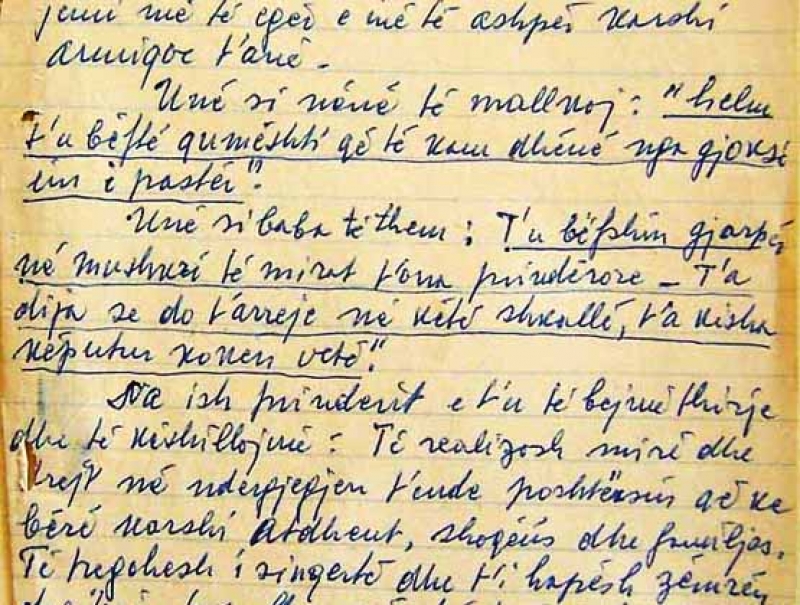 jemi më të egër e më të ashpër karshi
armiqve t'anë.
Unë si nënë të mallkoj: "helm
t'u bëftë qumështi që të kam dhënë nga gjoksi
im i pastër".
Unë si baba të them: T'u bëfshin gjarpër
në mushkri të mirat t'ona prindërore – T'a
dija se do t'arreje në këtë shkallë, t'a kisha
këputur koken vetë."
Na ish prinderit e t'u të bejmë thirje
dhe të këshillojmë: Të realizosh mirë dhe
drejt në ndergjegjen t'ende poshtërsin që ke
bërë karshi atdheut, shoqëris dhe familjes.
Të tregohesh i singertë dhe t'i hapësh zëmrën